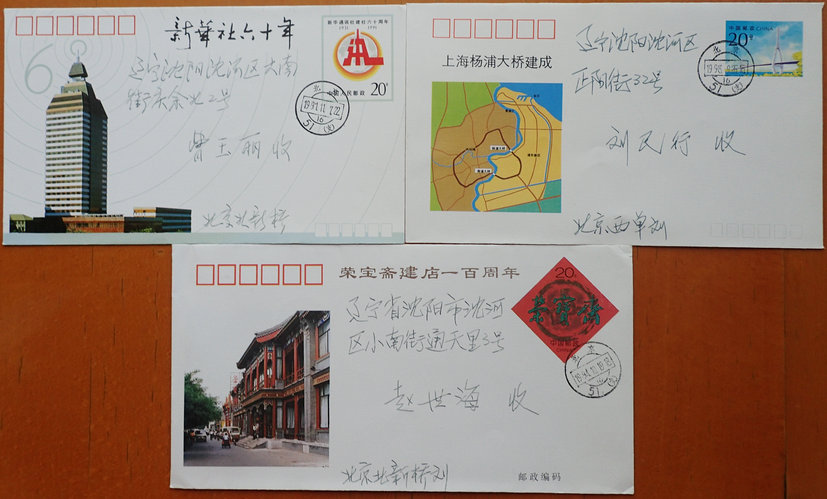 新华社六十年
新华通讯社建社六十周年
1931 1991
20分
中国人民邮政
60
辽宁沈阳沈河区大南
街庆余北2号
曾玉丽 收
北京北新桥
北京
1991.11.7.22
16
51(支)
上海杨浦大桥建成
中国邮政 CHINA
20分
辽宁沈阳沈河区
正阳街32号
刘民行 收
北京西单刘
北京
16
51(支)
荣宝斋建店一百周年
20分
榮寶齋
中国邮政
辽宁省沈阳市沈河
区小南街通天里3号
赵世海 收
北京北新桥刘
邮政编码
北京
16
51(支)